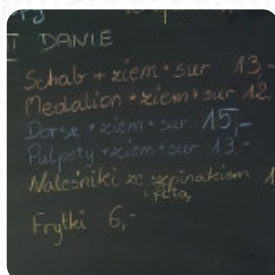 II DANIE
Schab + ziem + sur 13,-
Medalion + ziem + sur 12,
Dorsz + ziem + sur 15,-
Pulpety + ziem + sur 13,-
Naleśniki ze szpinakiem 1
i fetą
Frytki 6,-